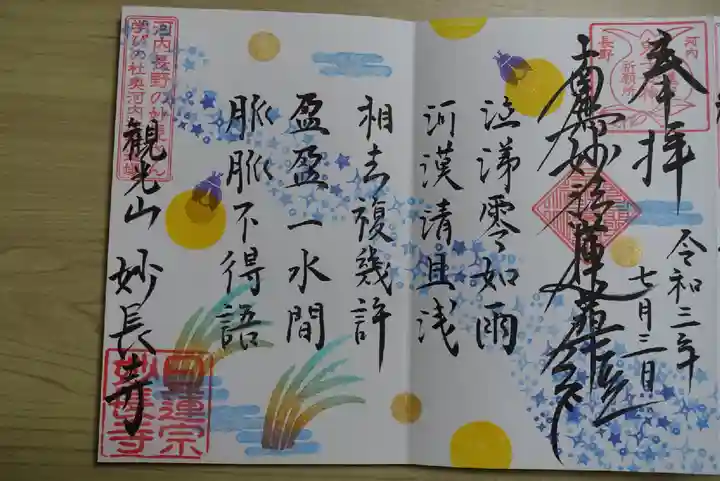 奉拝
令和三年
七月三日
南無妙法蓮華経
泣涕零如雨
河漢清且浅
相去複幾許
盈盈一水間
脈脈不得語
観光山 妙長寺
河内
長野
祈願所
河内長野の妙見さん
学びの社奥河内
日蓮宗
妙長寺